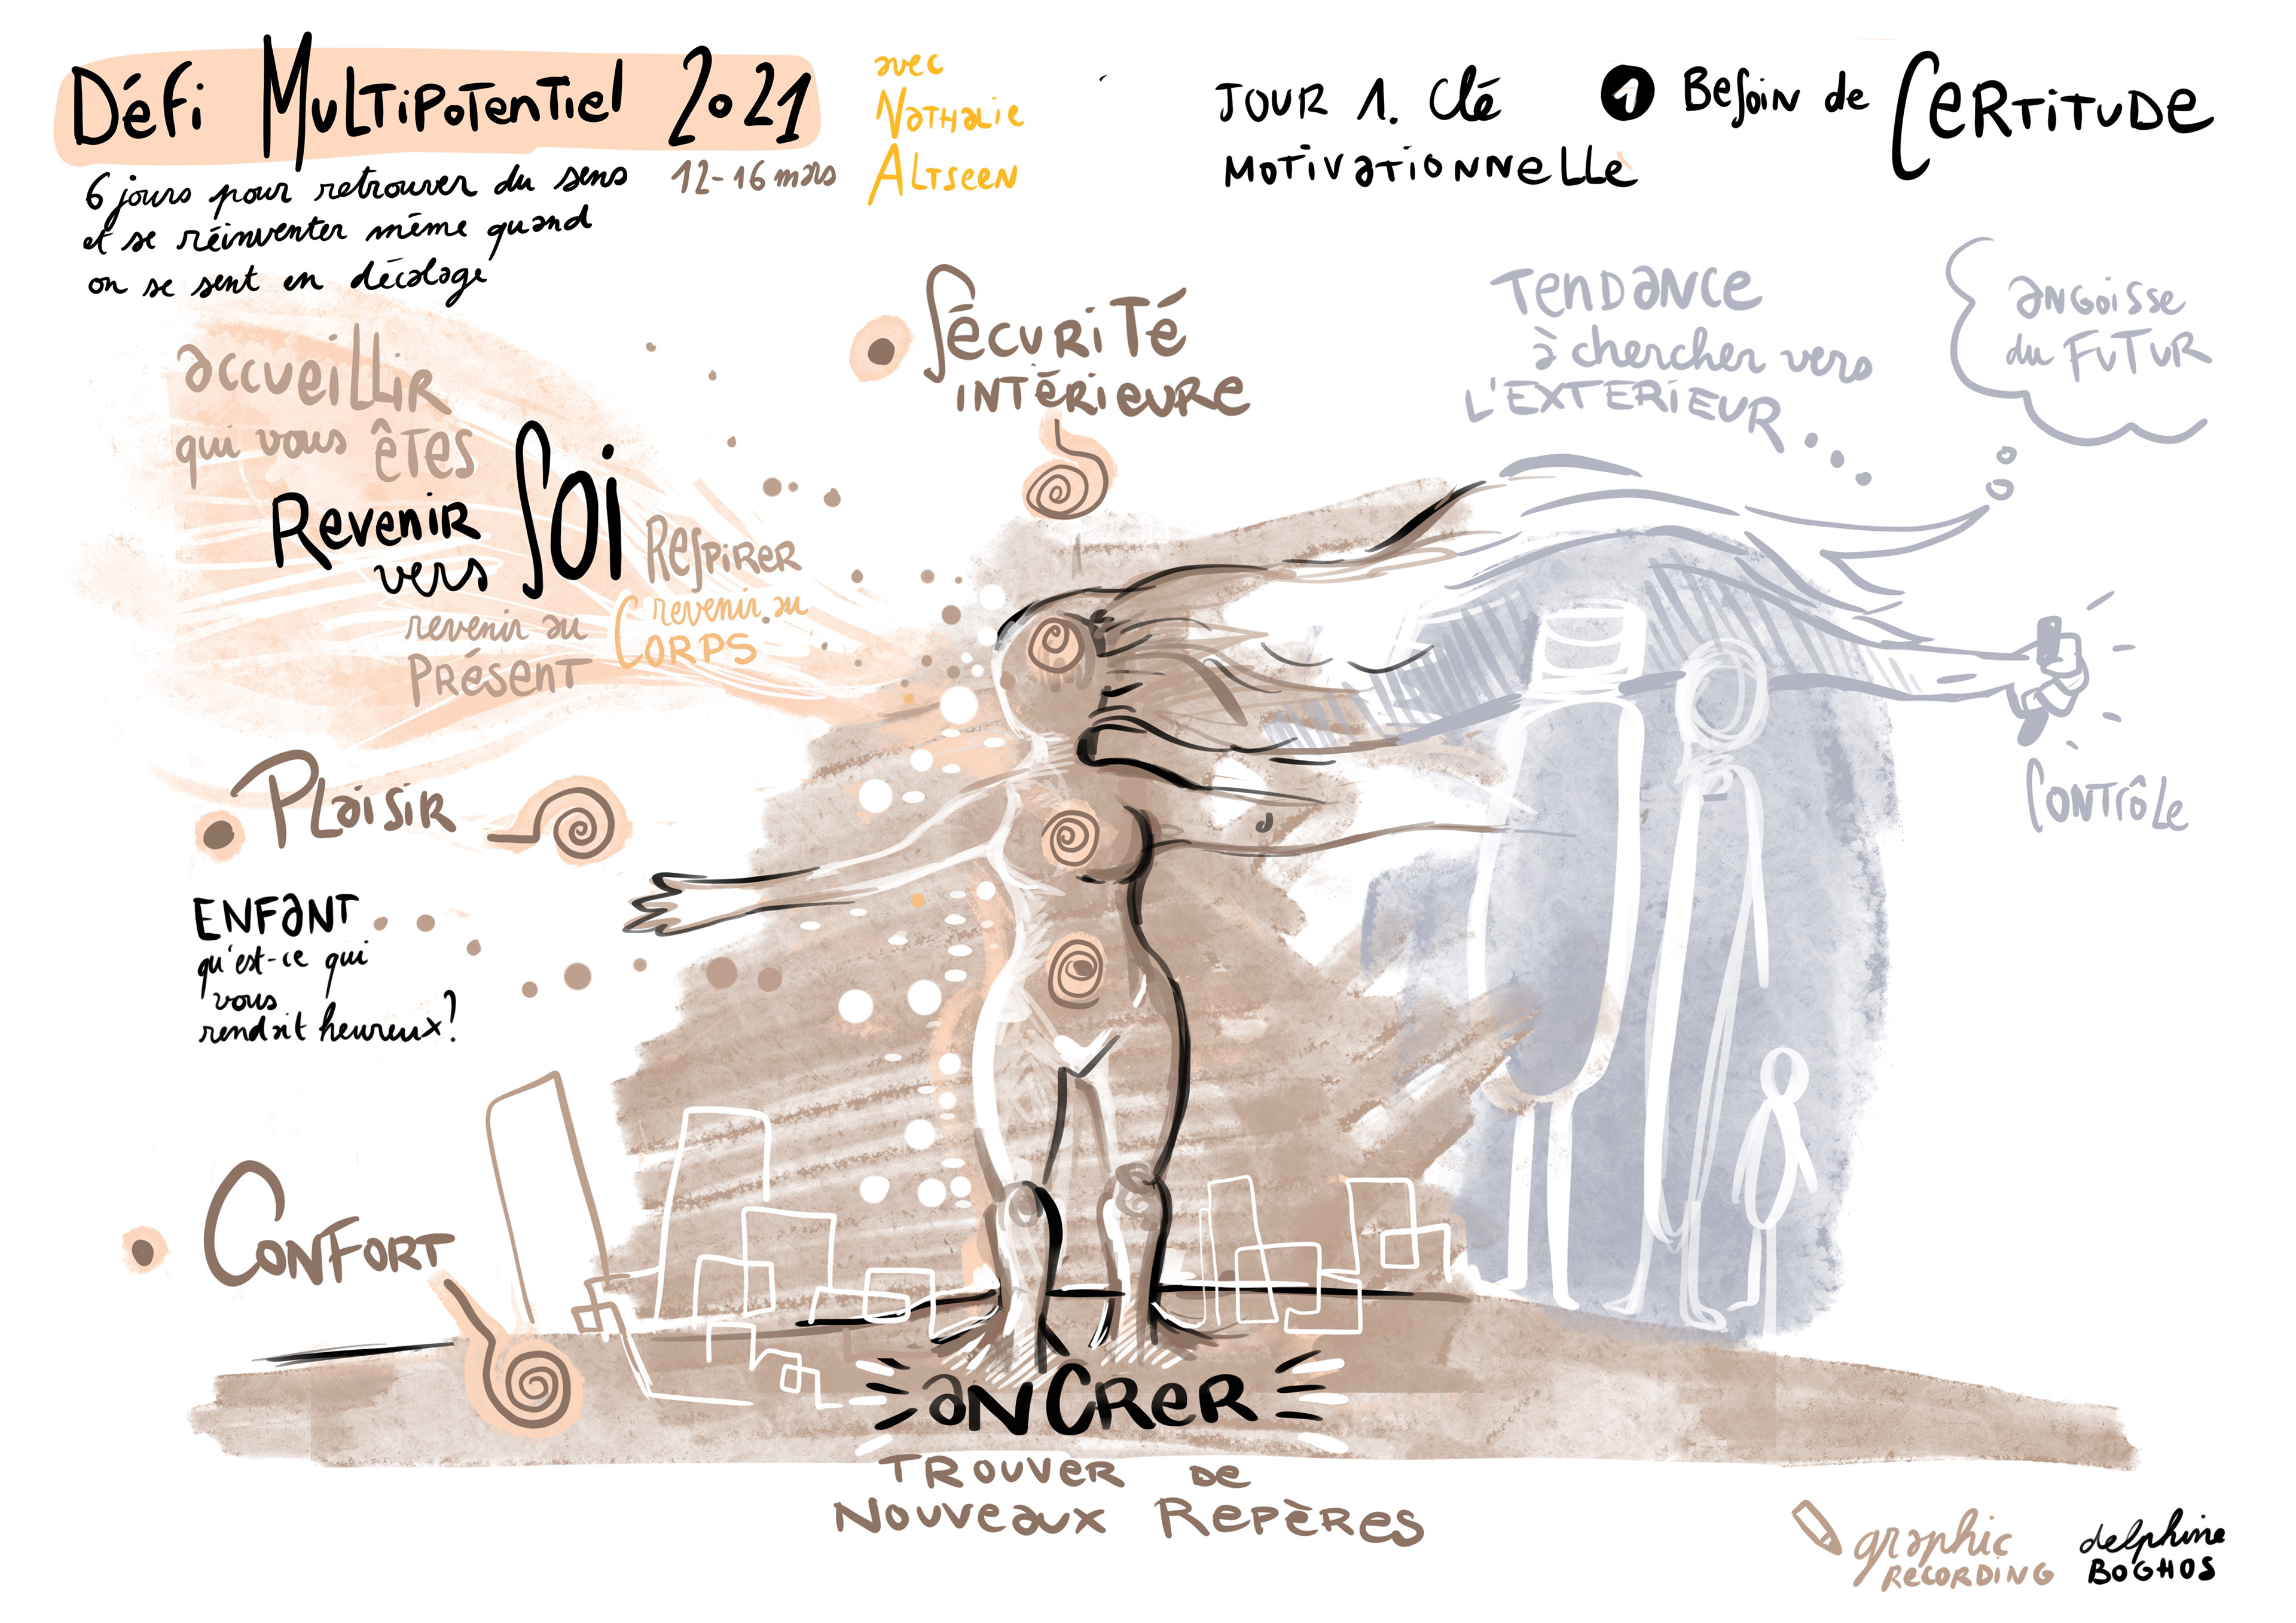 Défi Multipotentiel 2021
6 jours pour retrouver du sens
et se réinventer même quand
on se sent en décalage
12-16 mars
avec
Nathalie
Altseen
Jour 1. Clé
motivationnelle
1 Besoin de Certitude
accueillir
qui vous êtes
Revenir
vers Soi
Respirer
revenir au
Corps
revenir au
présent
Sécurité
intérieure
Tendance
à chercher vers
l'extérieur
angoisse
du futur
Contrôle
Plaisir
Enfant
qu'est-ce qui
vous
rendait heureux?
Confort
ancrer
Trouver de
Nouveaux Repères
graphic
recording
delphine
Boghos